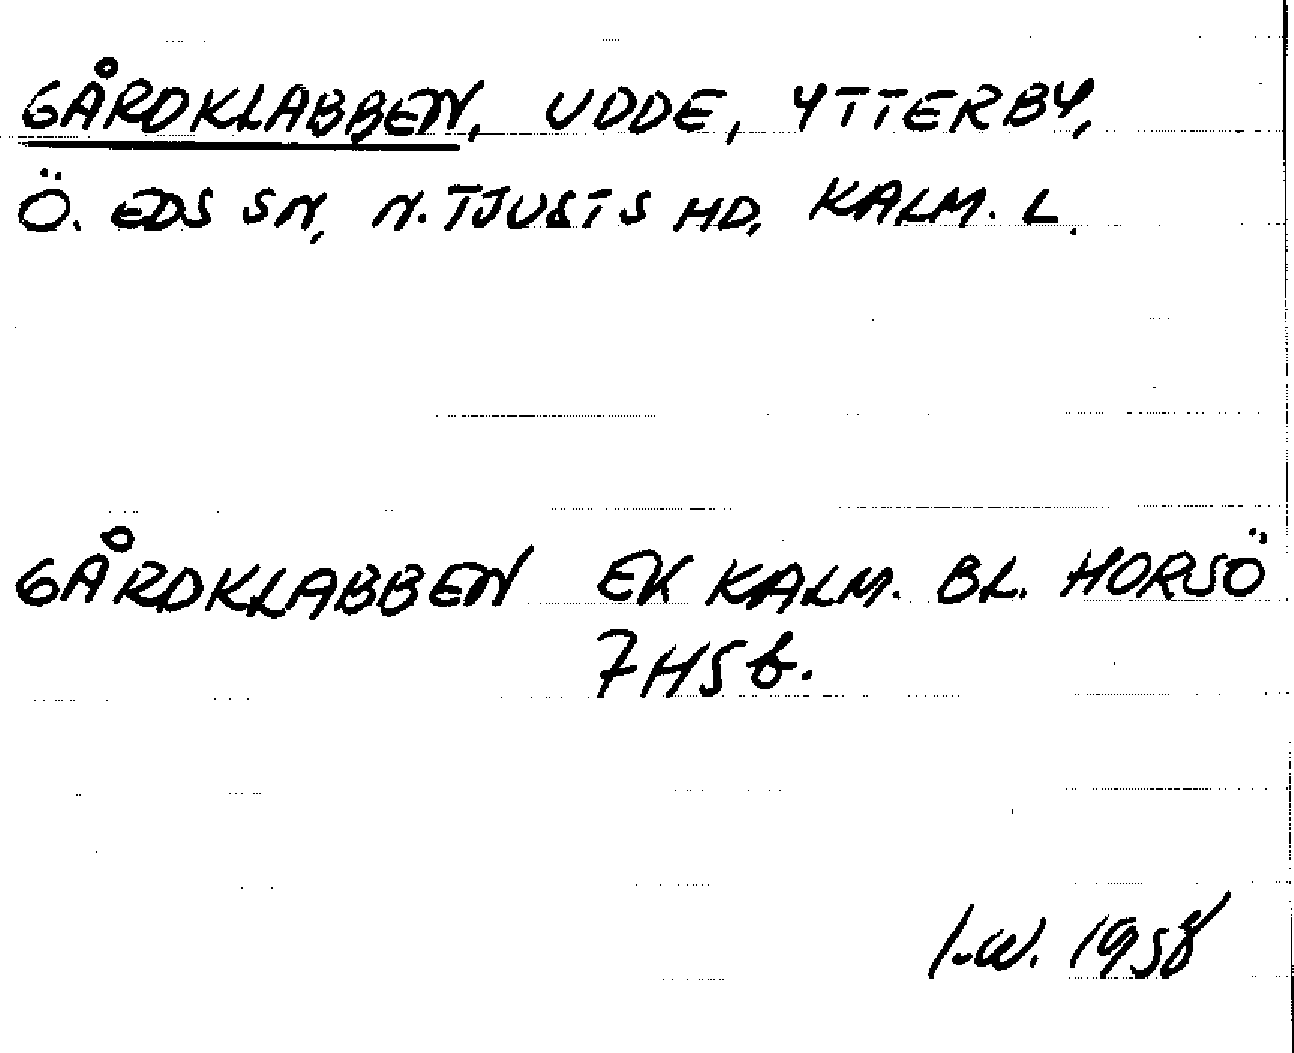 GÅRDKLABBEN, UDDE, YTTERBY,
Ö. EDS SN, N. TJUSTS HD, KALM. L.
GÅRDKLABBEN EK KALM. BL. HORSÖ
7H5b.
I.W. 1958